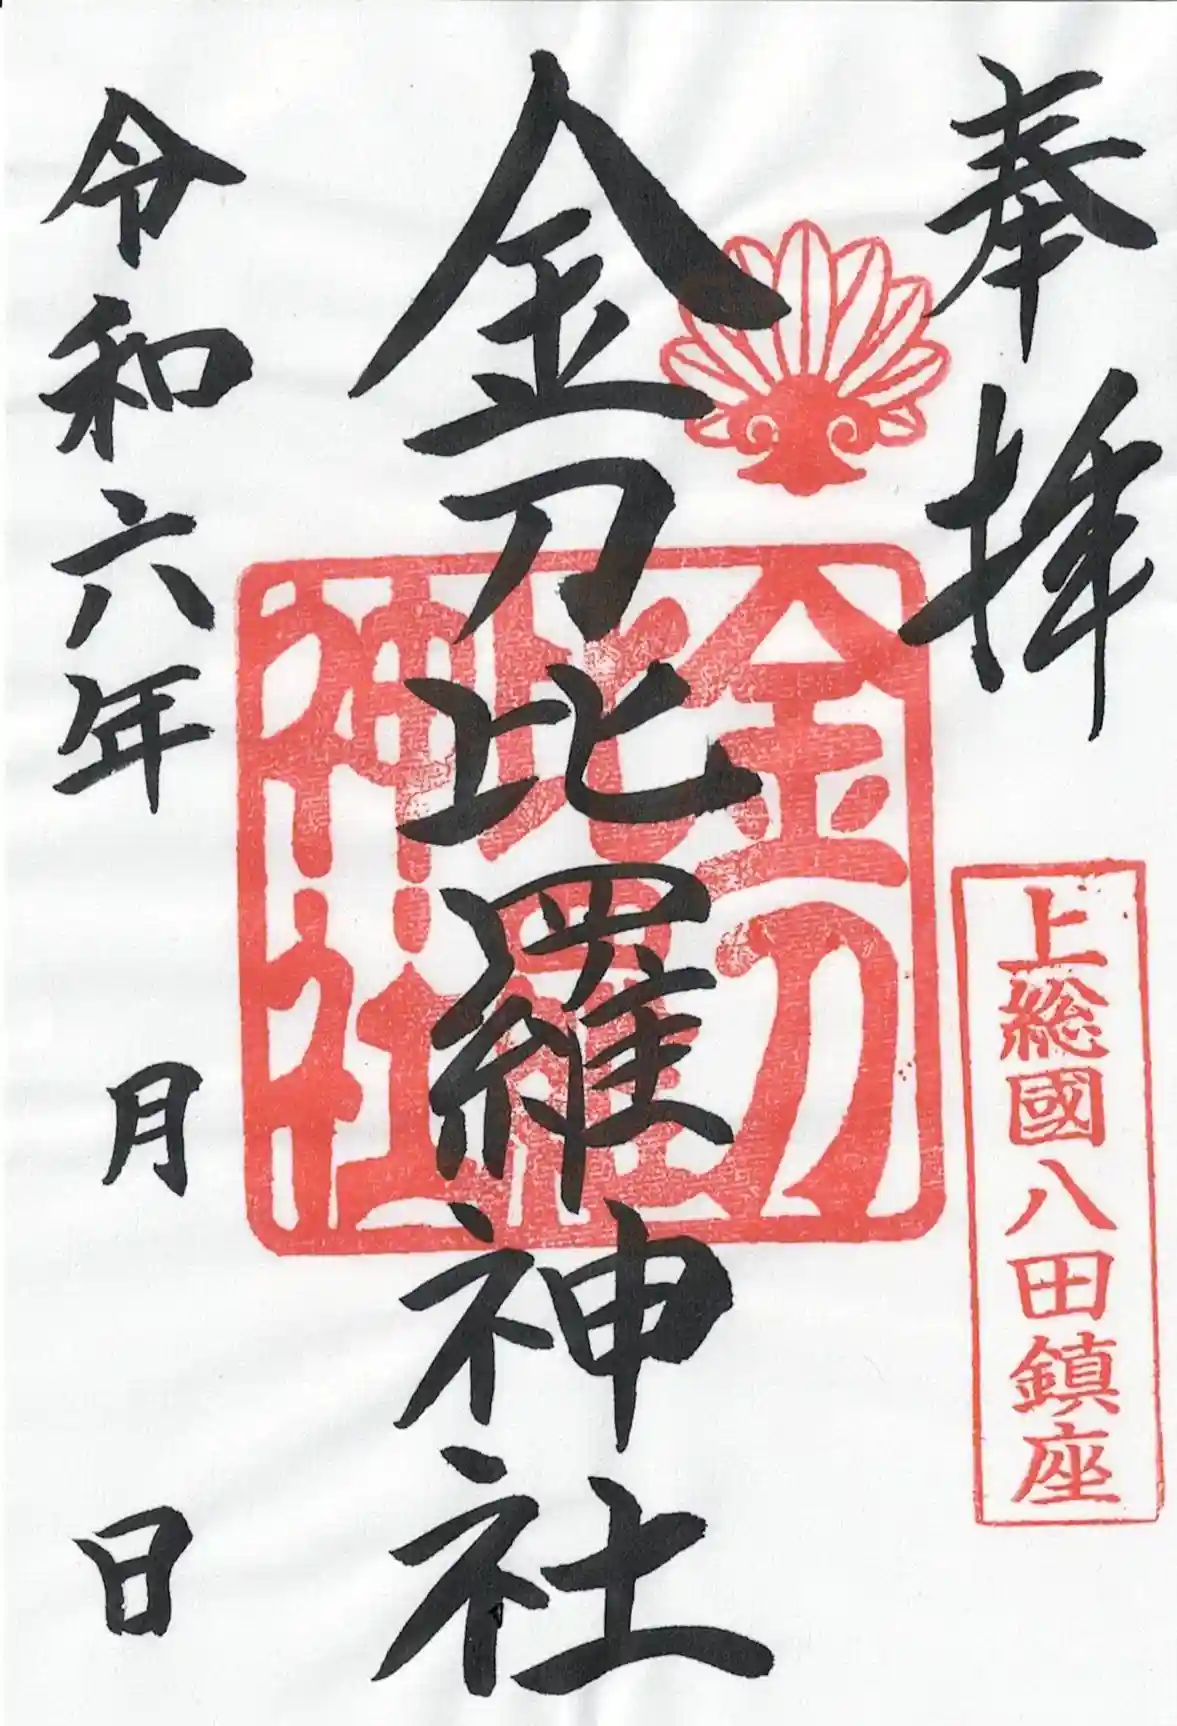 奉拝
上総國八田鎮座
金刀比羅神社
金刀
比羅
神社
令和六年 月 日